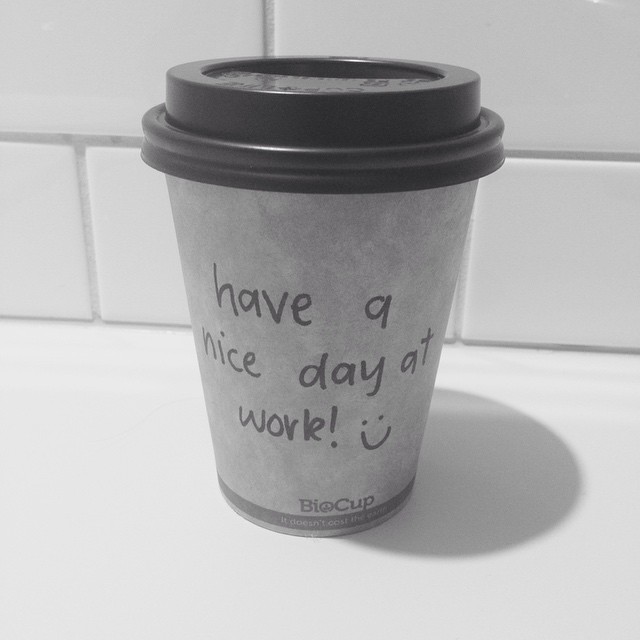 have a
nice day at
work!
BioCup
it doesn't cost the